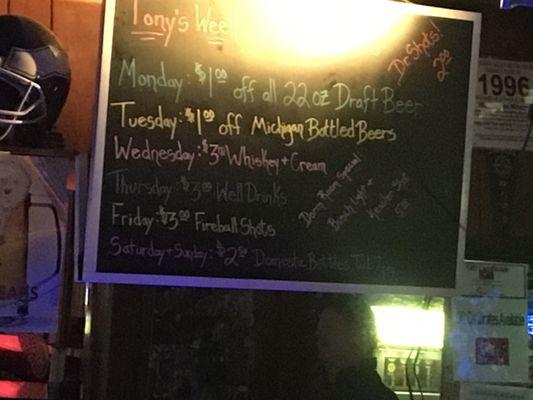 Tony's
Dr. Shots!
2.00
Monday: $1.00 off all 22 oz Draft Beer
Tuesday: $1.00 off Michigan Bottled Beers
Wednesday: $3.00 Whiskey + Cream
Thursday: $3.00 Well Drinks
Friday: $3.00 Fireball Shots
Saturday + Sunday: $2.50 Domestic Bottles
Dorm Room Special
Busch Light +
1996